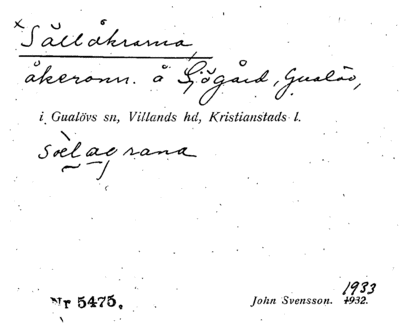 x Sällåkrarna,
åkeromr. å Sjögård, Gualöv,
i Gualövs sn, Villands hd, Kristianstads l.
Nr 5475.
John Svensson. 1932. 1933